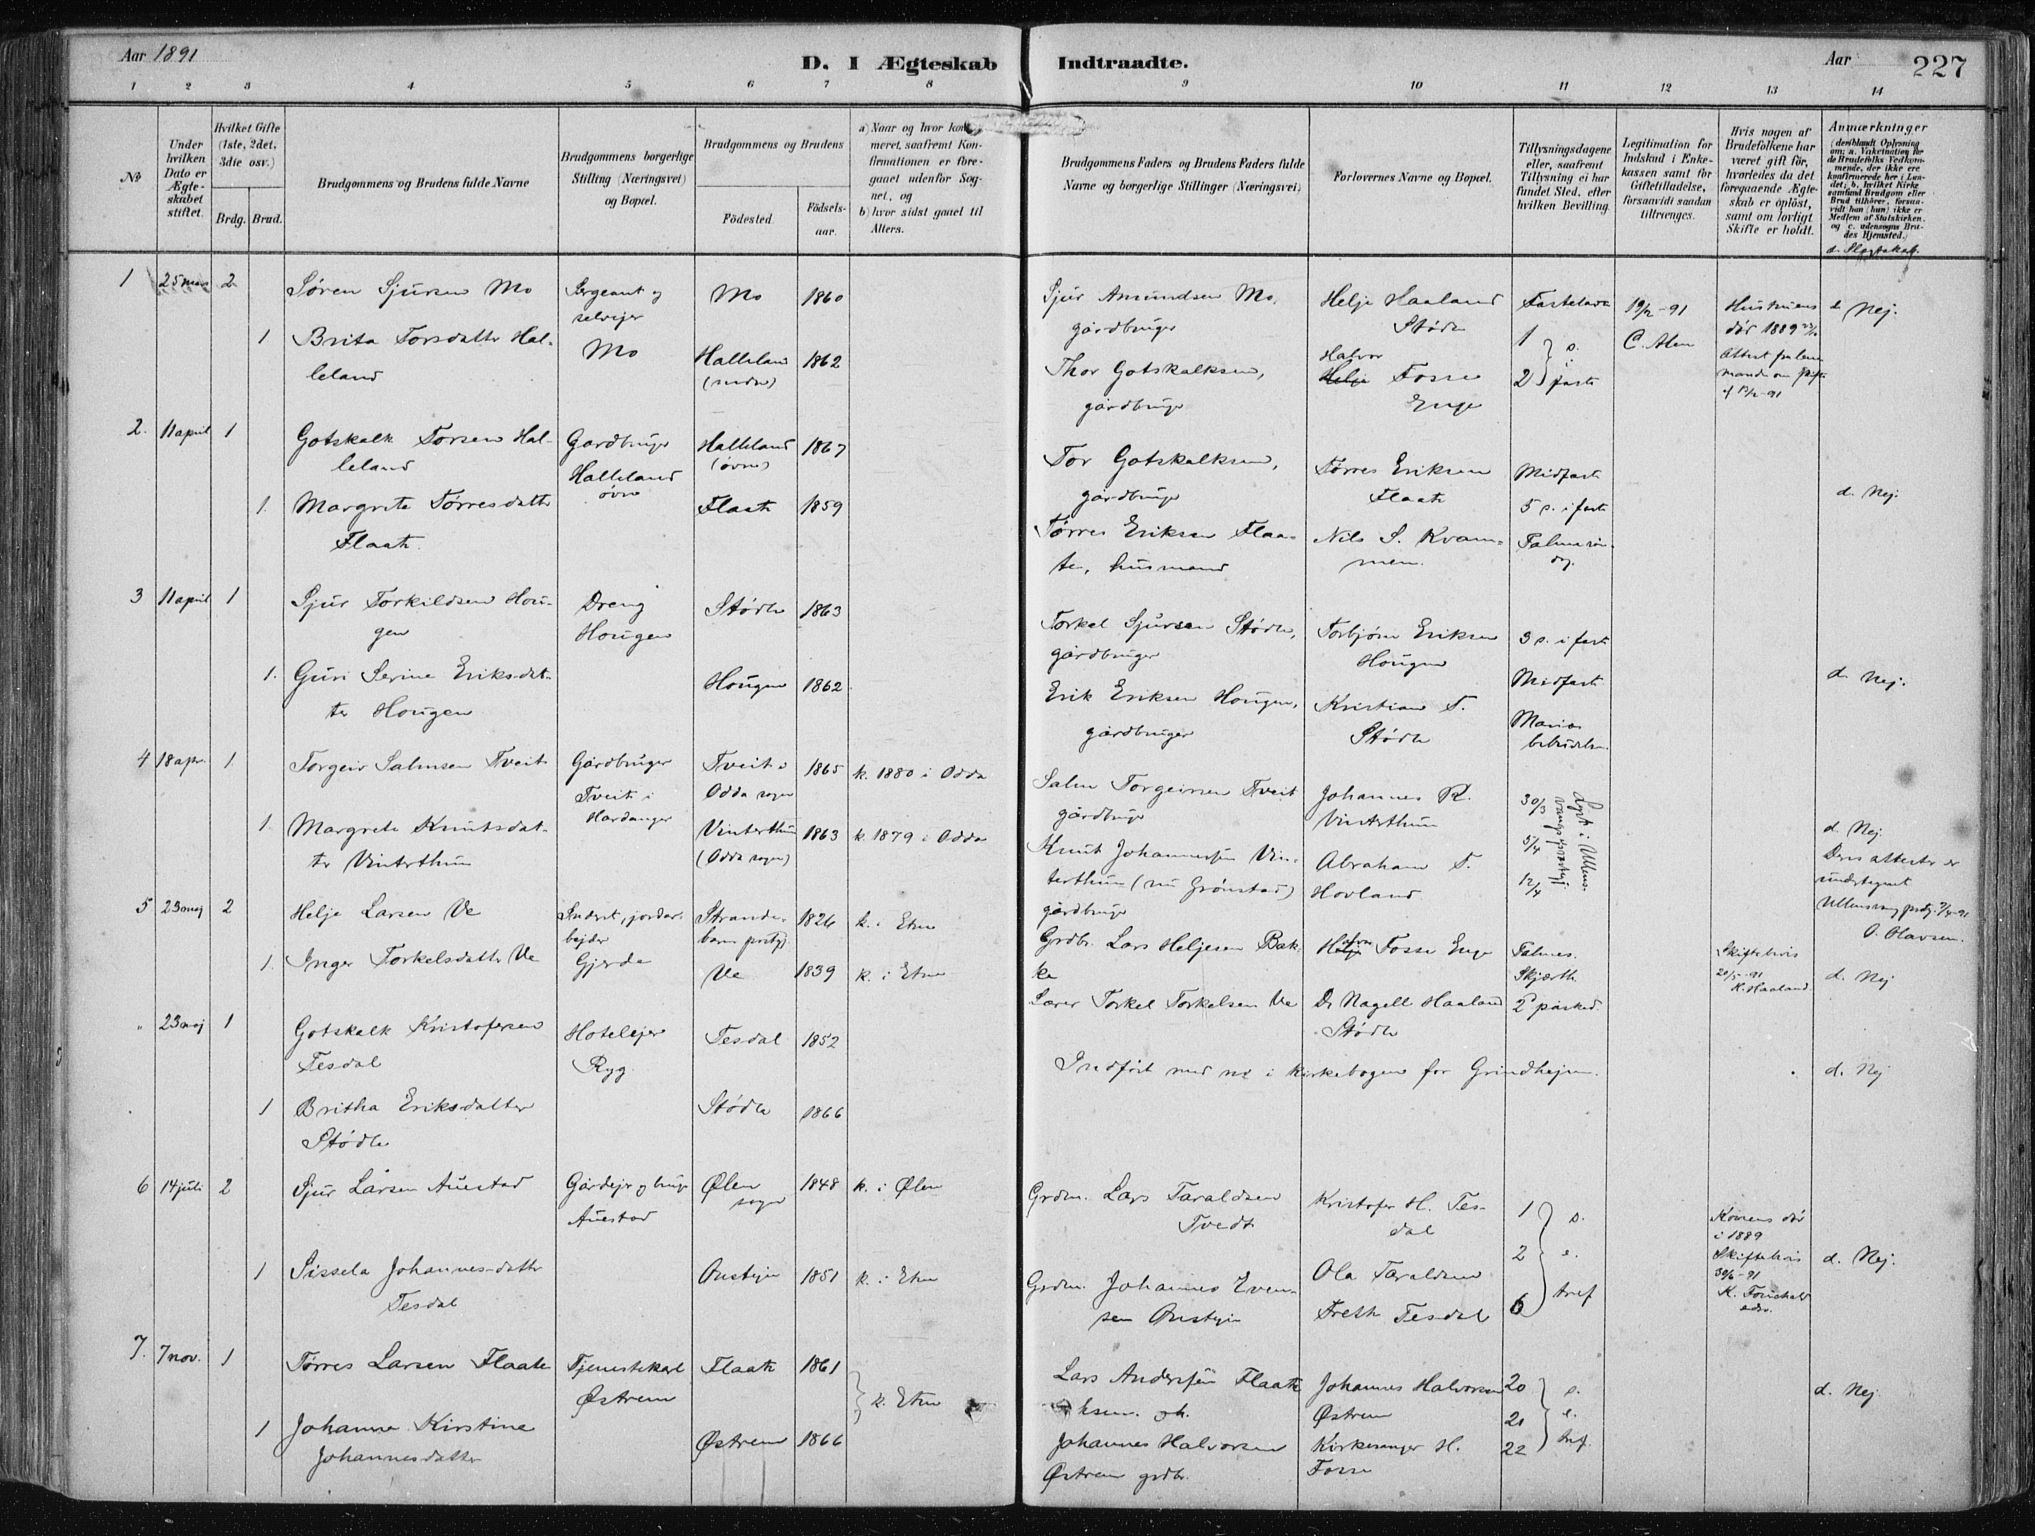 Aar 1891
D. I Ægteskab Indtraadte.
Aar
227
1 2 3 4 5 6 7 8 9 10 11 12 13 14
No
Under hvilken Dato er Ægteskabet stiftet.
Hvilket Gifte (1ste, 2det, 3die osv.)
Brdg. Brud.
Brudgommens og Brudens fulde Navne
Brudgommens borgerlige Stilling (Næringsvei) og Bopæl.
Brudgommens og Brudens
Födested. Födsels-aar.
b) hvor sidst gaaet til Alters.
Brudgommens Faders og Brudens Faders fulde Navne og borgerlige Stillinger (Næringsvei)
Forlovernes Navne og Bopæl.
Tillysningsdagene eller, saafremt Tillysning ei har fundet Sted, efter hvilken Bevilling.
Legitimation for Indskud i Enkekassen samt for Giftetilladelse, forsaavidt saadan tiltrænges.
Hvis nogen af Brudefolkene har været gift før, hvorledes da det foregaaende Ægteskab er opløst, samt om lovligt Skifte er holdt.
Anmærkninger
d. Slægtskab.
1 25 mars 2
Søren Sjursen Mo
Sergeant og selvejer
Mo
Mo 1860
Sjur Amundsen Mo, gårdbruger
Helje Haaland Støde
Fastelavn
19/2-91
C. Alen
d. Nej.
1 Brita Torsdatter Halleland
Halleland 1862
Thor Gotskalksen, gårdbruger
Halvor Fosse Enge
1 2 s. i faste
2. 11 april 1
Gotskalk Torsen Halleland
Gardbruger Halleland øvre
Halleland (øvre) 1867
Tor Gotskalksen, gårdbruger
Tørres Eriksen Flaate
Midfaste
5 s. i faste
d. Nej.
1. Margrete Tørresdatter Flaate.
Flaate 1859
Tørres Eriksen Flaate, husmand
Nils S. Kvammen.
3 11 april 1
Sjur Torkildsen Hougen
Dreng Hougen
Støde 1863
Torkel Sjursen Støde, gårdbruger
Torbjørn Eriksen Hougen
3 s. i faste
Midfaste
d. Nej.
1. Guri Serine Eriksdatter Hougen
Hougen 1862
Erik Eriksen Hougen, gårdbruger
Kristian T. Støde
Maria bebudelse.
4 18 apr. 1
Torgeir Salmsen Tveit
Gårdbruger Tveit i Hardanger
Tveit i Odda sogn 1865
k. 1880 i Odda
Salm Torgeirsen Tveit gårdbruger
Johannes K. Vinterthun
30/3
5/4
12/4
1. Margrete Knutsdatter Vinterthun
Vinterthun (Odda sogn) 1863
k. 1879 i Odda
Knut Johannessen Vinterthun (nu Grønstad) gårdbruger
Abraham T. Hovland
d. Nej
O. Olavsen.
5 23 maj 2
Helje Larsen Ve
Gjerde
Strandebarm 1826
k. i Etne
Grdbr. Lars Heljesen Bakke
Fosse Enge
Skiftebevis 20/5-91 H. Haaland
d. Nej
1. Inger Torkelsdatter Ve
Ve 1839
k. i Etne
Lærer Torkel Torkelsen Ve
Dr Nagell Haaland Støde
Skjærth.
2 påsked.
" 23 maj 1
Gotskalk Kristofersen Tesdal
Hotelejer Ryg
Tesdal 1852
Indført med no i kirkebogen for Grindhejm.
d. Nej
1 Britha Eriksdatter Støde
Støde 1866
6 14 juli 2
Sjur Larsen Auestad
Auestad
Ølen sogn 1848
k. i Ølen
Grdm. Lars Taraldsen Tvedt
Kristofer H. Tesdal
Konen dør i 1889
Skiftebevis 30/6-91
d. Nej.
1 Sissela Johannesdatter Tesdal
1851
k. i Etne
Grdm. Johannes Evensen
Ola Taraldsen Freth Tesdal
1 2 6 s. e. tref
7. 7 nov. 1
Tørres Larsen Flaate
Tjenestekarl Østrem
Flaate 1861
k. Etne
Lars Andersen Flaate
Johannes Halvorsen Østrem
20 21 22 s. e. tref.
d. Nej
1 Johanna Kirstine Johannesdatter
Østrem 1866
Johannes Halvorsen Østrem grdbr.
Kirkesanger H. Fosse